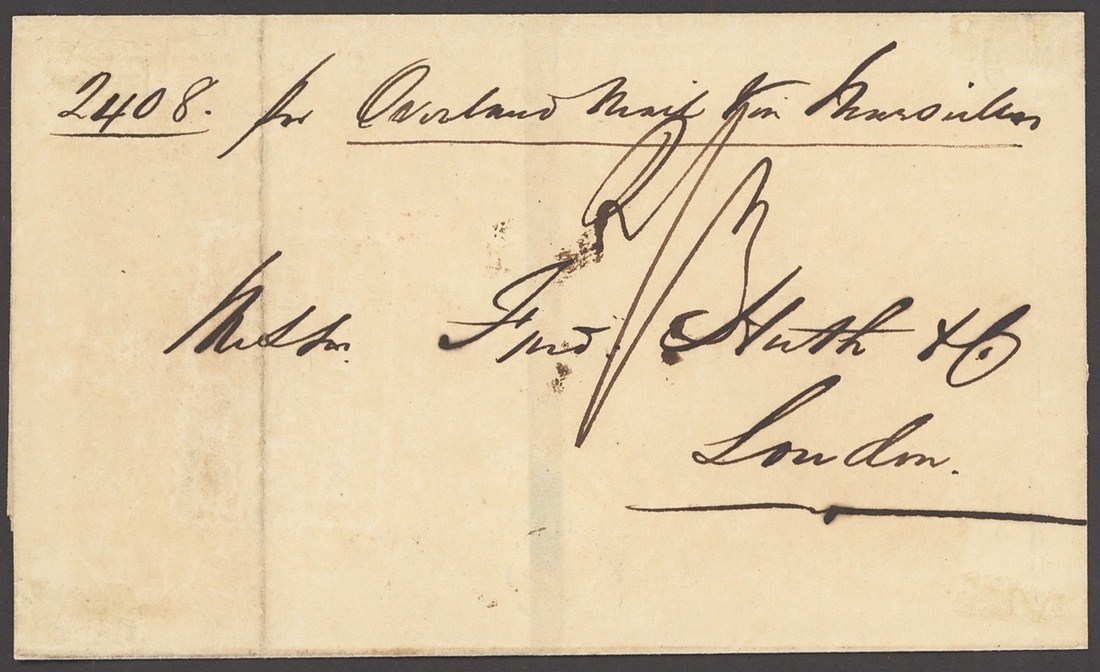 2408. per Overland Mail via Marseilles
2/3
Messrs. Fred. Huth & Co.
London.